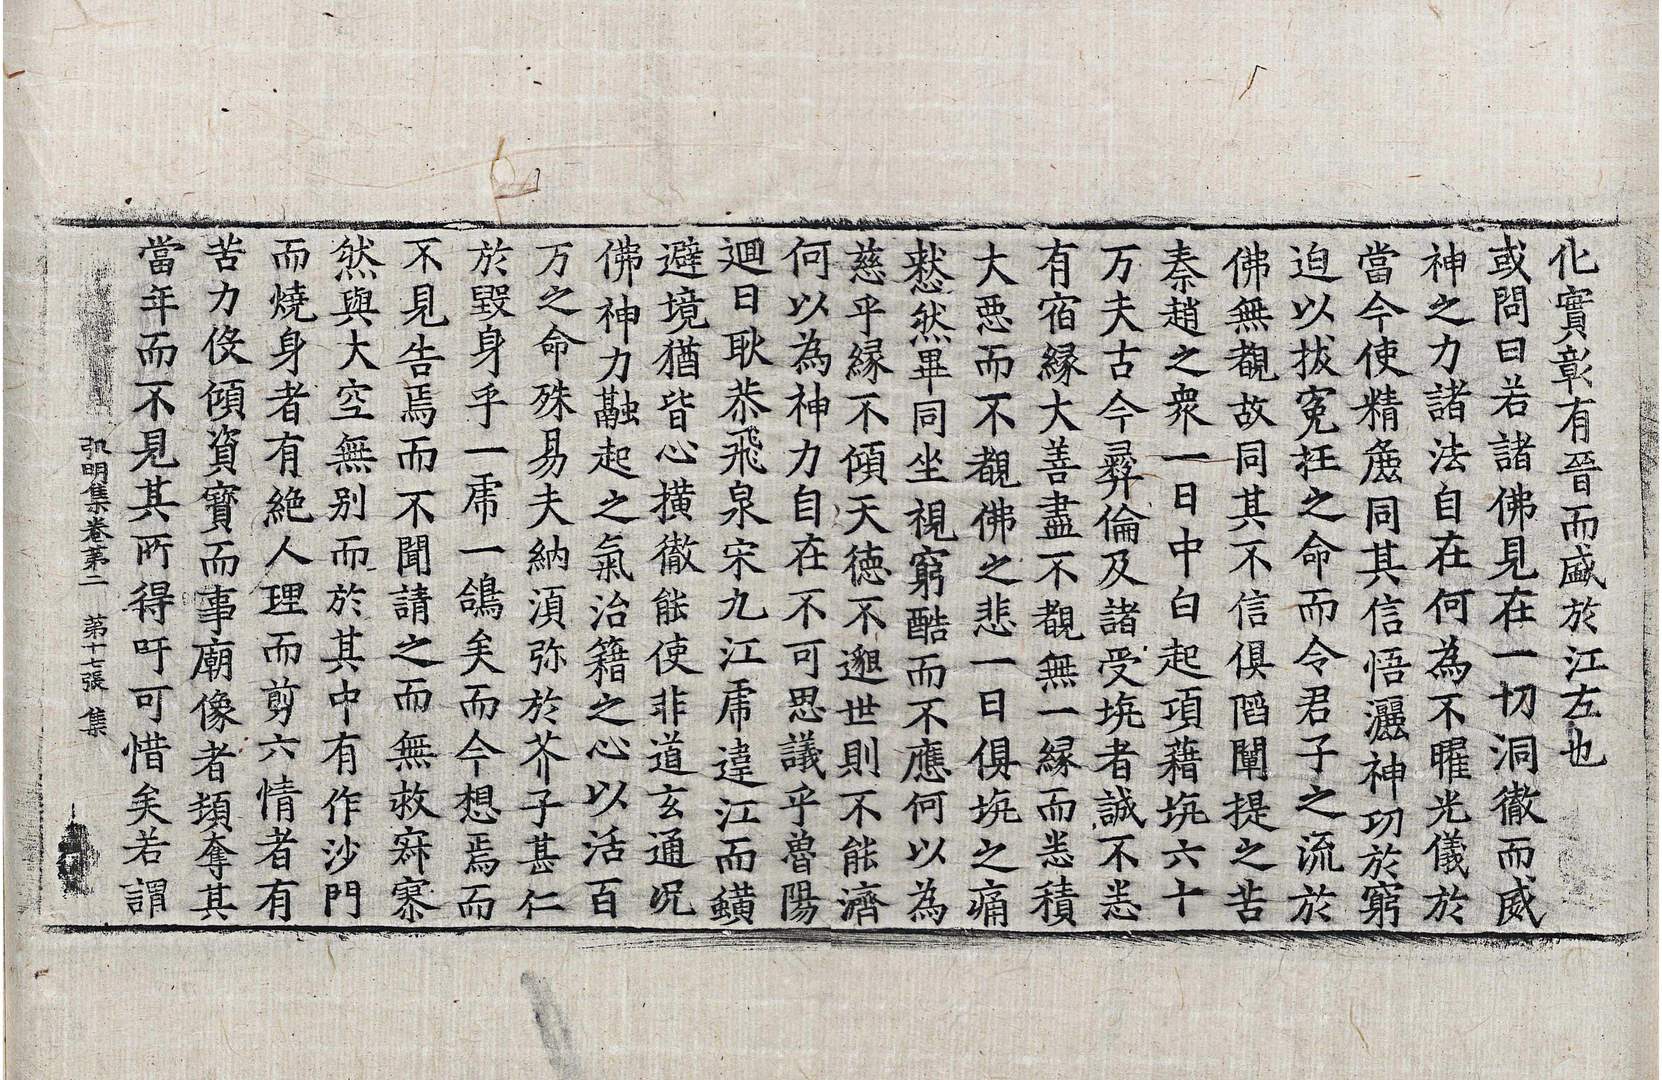 化實彰有晉而盛於江左也
或問曰若諸佛見在一切洞徹而威
神之力諸法自在何為不曜光儀於
當今使精麁同其信悟灑神功於窮
迫以拔冤枉之命而令君子之流於
佛無覩故同其不信俱陷闡提之苦
秦趙之衆一日中白起項藉坑六十
万夫古今彛倫及諸受坑者誠不悉
有宿緣大善盡不覩無一緣而悉積
大惡而不覩佛之悲一日俱坑之痛
愁然畢同坐視窮酷而不應何以為
慈乎緣不傾天德不邈世則不能濟
何以為神力自在不可思議乎魯陽
迴日耿恭飛泉宋九江虎違江而蝗
避境猶皆心橫徹能使非道玄通況
佛神力融起之氣治籍之心以活百
万之命殊易夫納湏弥於芥子甚仁
於毀身乎一虎一鴿矣而今想焉而
不見告焉而不聞請之而無救寂寥
然與大空無别而於其中有作沙門
而燒身者有絶人理而剪六情者有
苦力役傾資寶而事廟像者頓奪其
當年而不見其所得吁可惜矣若謂
弘明集卷第二 第十七張 集